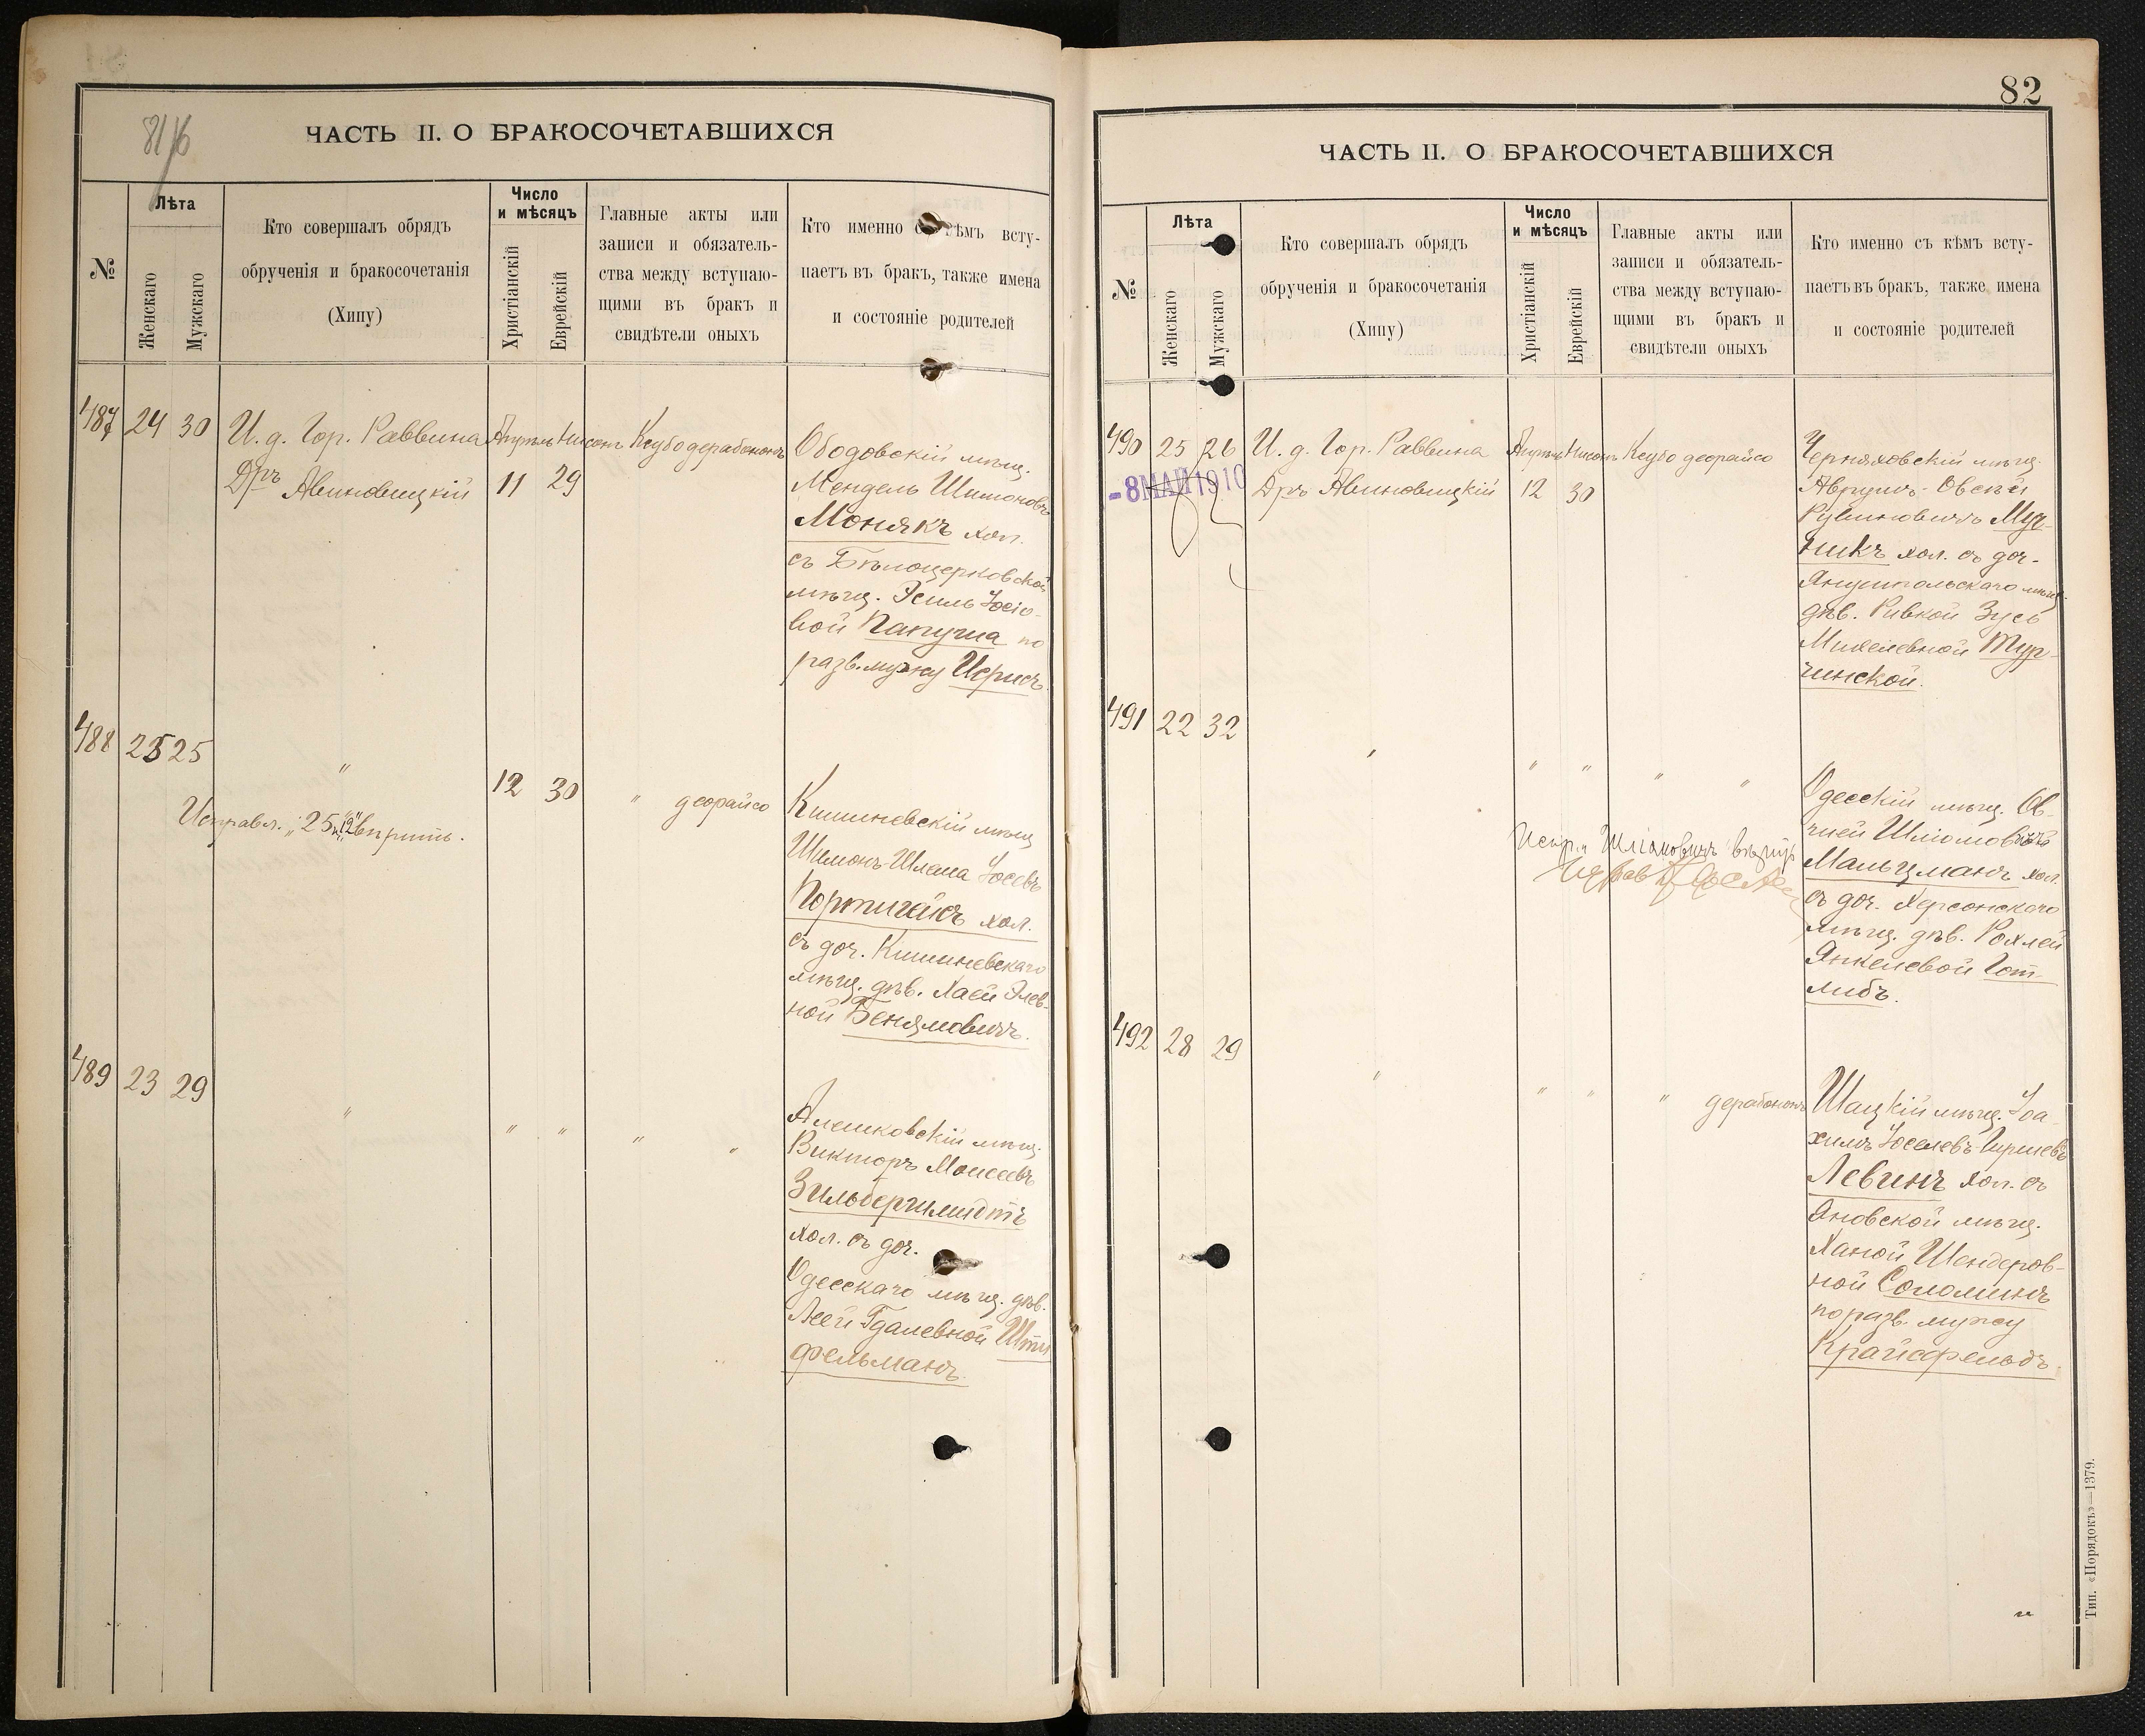 81/6
ЧАСТЬ II. О БРАКОСОЧЕТАВШИХСЯ
№
Лѣта
Женскаго
Мужскаго
Кто совершалъ обрядъ
обрученія и бракосочетанія
(Хипу)
Число
и мѣсяцъ
Христіанскій
Еврейскій
Главные акты или
записи и обязатель-
ства между вступаю-
щими въ бракъ и
свидѣтели оныхъ
Кто именно съ кѣмъ всту-
паетъ въ бракъ, также имена
и состояніе родителей
487 24 30 И. д. Гор. Раввина Апрѣль Нисонъ Ксубо дерабононъ
Д-ръ Авиновицкій 11 29
Ободовскій мѣщ.
Мендель Шимоновъ
Монякъ хол.
съ Бѣлоцерковской
мѣщ. Эсиль Іосіо-
вой Папуша по
разв. мужу
488 25 25 " 12 30 " деорайсо
Исправл. "25" и "12" вѣрить.
Кишиневскій мѣщ.
Шимонъ-Шлема Іосевъ
Портигейсъ хол.
съ доч. Кишиневскаго
мѣщ. дѣв. Хаей Элев-
ной Бенямовичъ.
489 23 29 " " " " "
Алешковскій мѣщ.
Викторъ Моисеевъ
Зильбершмидтъ
хол. съ доч.
Одесскаго мѣщ. дѣв.
Леей Гдалевной Шти
фельманъ.
82
ЧАСТЬ II. О БРАКОСОЧЕТАВШИХСЯ
№
Лѣта
Женскаго
Мужскаго
Кто совершалъ обрядъ
обрученія и бракосочетанія
(Хипу)
Число
и мѣсяцъ
Христіанскій
Еврейскій
Главные акты или
записи и обязатель-
ства между вступаю-
щими въ бракъ и
свидѣтели оныхъ
Кто именно съ кѣмъ всту-
паетъ въ бракъ, также имена
и состояніе родителей
490 25 26 И. д. Гор. Раввина Апрѣль Нисонъ Ксубо деорайсо
-8 МАЙ 1910 Д-ръ Авиновицкій 12 30
Черняховскій мѣщ.
Аврумъ-Овсей
Рувиновичъ Муч-
никъ хол. съ доч.
Янушпольскаго мѣщ.
дѣв. Ривкой Зусь
Михелевной Тур-
чинской.
491 22 32 " " " " "
Одесскій мѣщ. Ов-
шей Шліомовичъ
Мальцманъ хол.
съ доч. Херсонскаго
мѣщ. дѣв. Рохлей
Янкелевой Гот-
либъ.
Испр. "Шліомовичъ" вѣрить
492 28 29 " " " " дерабононъ
Шацкій мѣщ. Іоа-
химъ Іоселевъ-Гиршевъ
Левинъ хол. съ
Яновской мѣщ.
Ханой Шендеров-
ной Соломинъ
по разв. мужу
Крайсфельдъ.
Тип. «Порядокъ»—1379.